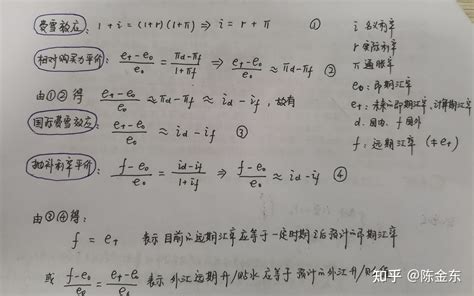 费雪效应: 1+i=(1+r)(1+π) ⇒ i=r+π ①
i 名义利率
r 实际利率
π 通胀率
相对购买力平价: (e_t-e_0)/e_0 = (π_d-π_f)/(1+π_f) ⇒ (e_t-e_0)/e_0 ≈ π_d-π_f ②
e_0: 即期汇率
e_t: 未来的即期汇率,
d: 国内, f 国外
f: 远期汇率 (≠e_t)
由①②得 (e_t-e_0)/e_0 ≈ π_d-π_f ≈ i_d-i_f, 故有
国际费雪效应: (e_t-e_0)/e_0 ≈ i_d-i_f ③
抛补利率平价: (f-e_0)/e_0 = (i_d-i_f)/(1+i_f) ⇒ (f-e_0)/e_0 ≈ i_d-i_f ④
由③④得:
f = e_t 表示目前的远期汇率应等于一定时期之后预计的即期汇率
或 (f-e_0)/e_0 = (e_t-e_0)/e_0 表示外汇远期升/贴水应等于预计的外汇升/
知乎 @陈金东